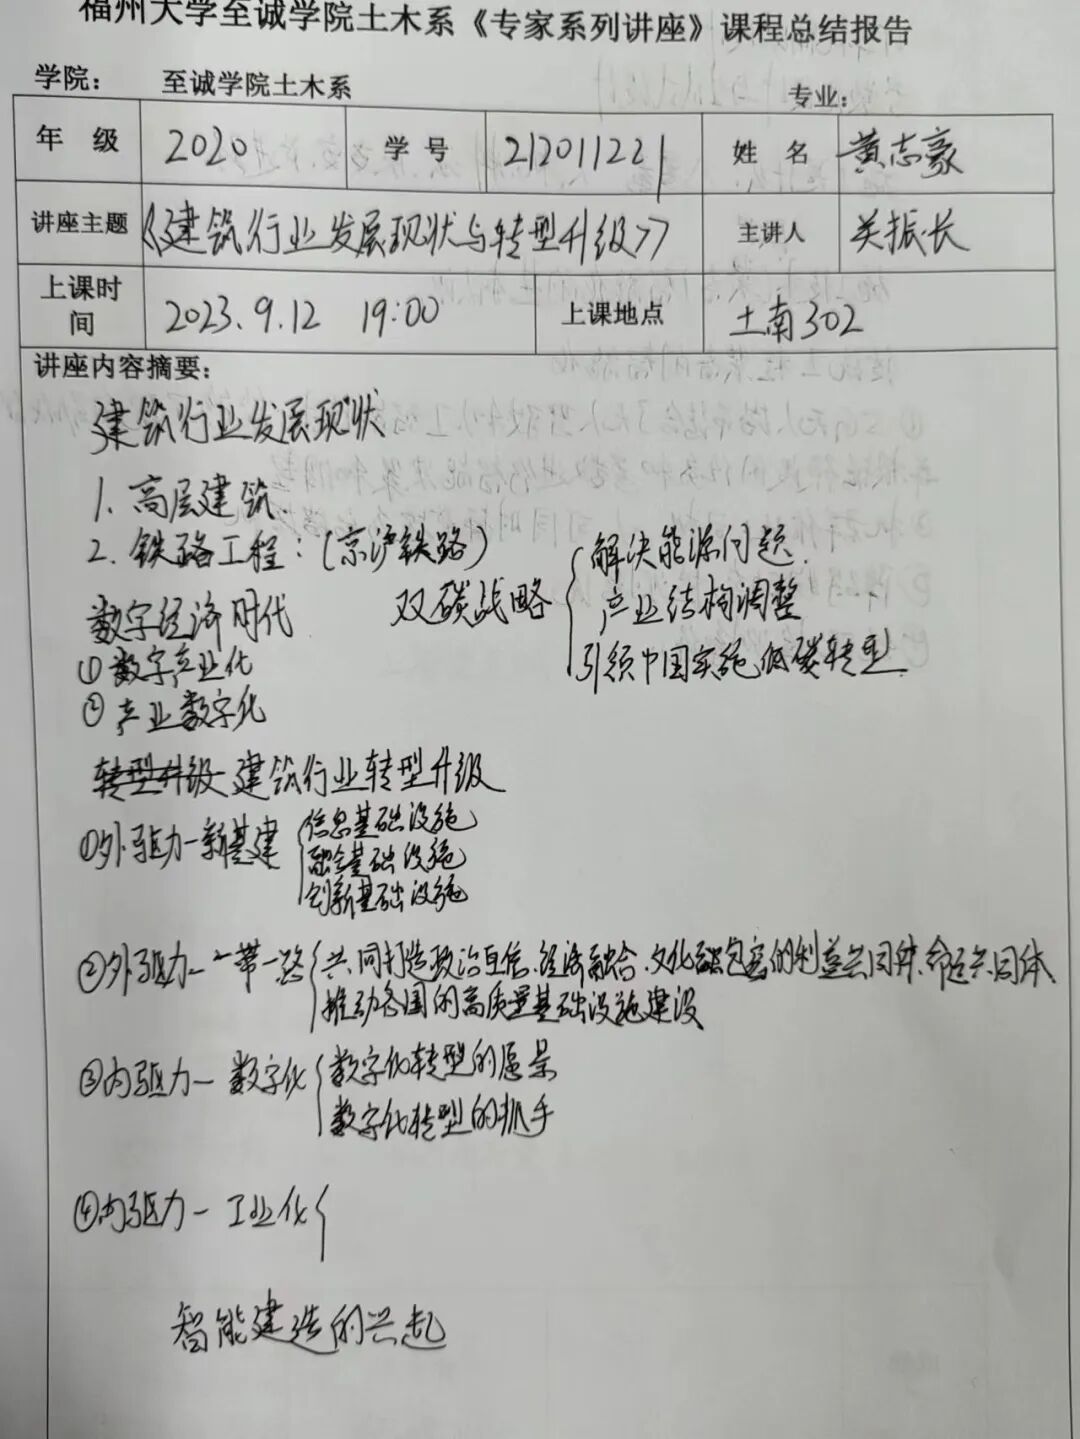 福州大学至诚学院土木系《专家系列讲座》课程总结报告
学院： 至诚学院土木系 专业：
年 级 2020 学 号 212011221 姓 名 黄志豪
讲座主题 《建筑行业发展现状与转型升级》 主讲人 关振长
上课时间 2023.9.12 19:00 上课地点 土南302
讲座内容摘要：
建筑行业发展现状
1. 高层建筑.
2. 铁路工程：(京沪铁路)
双碳战略 解决能源问题.
产业结构调整
引领中国实施低碳转型
数字经济时代
①数字产业化
②产业数字化
转型升级 建筑行业转型升级
①外驱力—新基建 信息基础设施
融合基础设施
创新基础设施
②外驱力—一带一路 共同打造政治互信、经济融合、文化包容的利益共同体、命运共同体
推动各国的高质量基础设施建设
③内驱力—数字化 数字化转型的愿景
数字化转型的抓手
④内驱力—工业化
智能建造的兴起